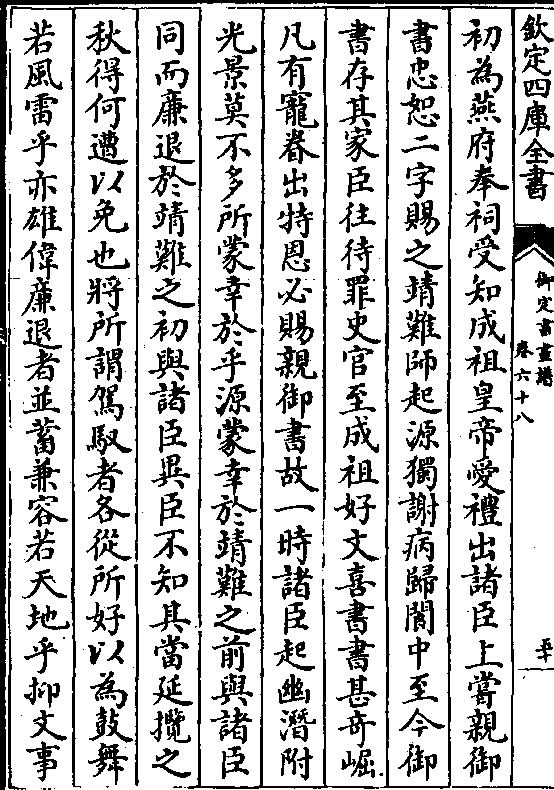 欽定四庫全書
御定書畫譜
卷六十八
初為燕府奉祠受知成祖皇帝愛禮出諸臣上嘗親御
書忠恕二字賜之靖難師起源獨謝病歸閣中至今御
書存其家臣往待罪史官至成祖好文喜書書甚奇崛
凡有寵眷出特恩必賜親御書故一時諸臣起幽潛附
光景莫不多所蒙幸於乎源蒙幸於靖難之前與諸臣
同而廉退於靖難之初與諸臣異臣不知其當延攬之
秋得何遭以免也將所謂駕馭者各從所好以為鼓舞
若風雷乎亦雄偉廉退者並蓄兼容若天地乎抑文事